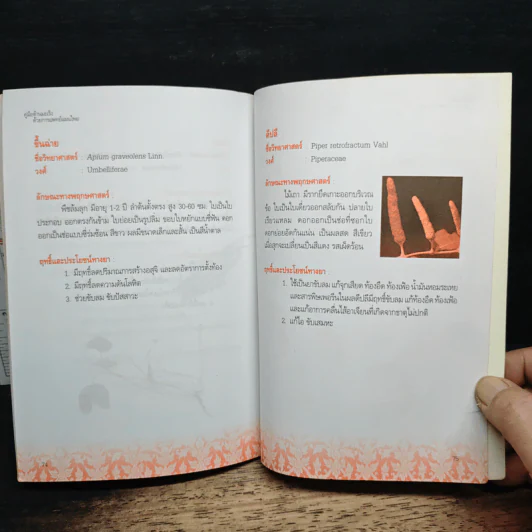 คู่มือต้านมะเร็ง
ด้วยการแพทย์แผนไทย
ขึ้นฉ่าย
ชื่อวิทยาศาสตร์ : Apium graveolens Linn.
วงศ์ : Umbelliferae
ลักษณะทางพฤกษศาสตร์ :
พืชล้มลุก มีอายุ 1-2 ปี ลำต้นตั้งตรง สูง 30-60 ซม. ใบเป็นใบ
ประกอบ ออกตรงกันข้าม ใบย่อยเป็นรูปลิ่ม ขอบใบหยักแบบซี่ฟัน ดอก
ออกเป็นช่อแบบซี่ร่มซ้อน สีขาว ผลมีขนาดเล็กและสั้น เป็นสีน้ำตาล
ฤทธิ์และประโยชน์ทางยา :
1. มีฤทธิ์ลดปริมาณการสร้างอสุจิ และลดอัตราการตั้งท้อง
2. มีฤทธิ์ลดความดันโลหิต
3. ช่วยขับลม ขับปัสสาวะ
74
ดีปลี
ชื่อวิทยาศาสตร์ : Piper retrofractum Vahl
วงศ์ : Piperaceae
ลักษณะทางพฤกษศาสตร์ :
ไม้เถา มีรากยึดเกาะออกบริเวณ
ข้อ ใบเป็นใบเดี่ยวออกสลับกัน ปลายใบ
เรียวแหลม ดอกออกเป็นช่อที่ซอกใบ
ดอกย่อยอัดกันแน่น เป็นผลสด สีเขียว
เมื่อสุกจะเปลี่ยนเป็นสีแดง รสเผ็ดร้อน
ฤทธิ์และประโยชน์ทางยา :
1. ใช้เป็นยาขับลม แก้จุกเสียด ท้องอืด ท้องเฟ้อ น้ำมันหอมระเหย
และสารพิพเพอรีนในผลดีปลีมีฤทธิ์ขับลม แก้ท้องอืด ท้องเฟ้อ
และแก้อาการคลื่นไส้อาเจียนที่เกิดจากธาตุไม่ปกติ
2. แก้ไอ ขับเสมหะ
75